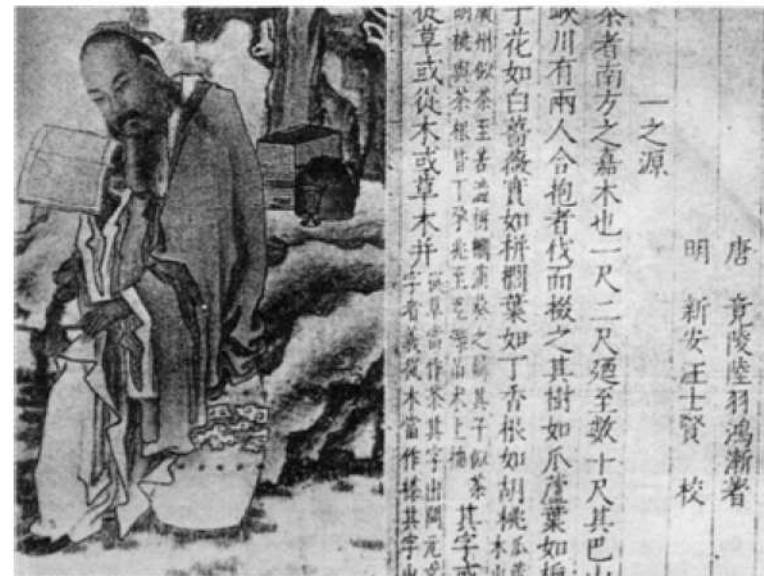 唐 竟陵陸羽鴻漸著
明 新安汪士賢 校
一之源
茶者南方之嘉木也一尺二尺廼至數十尺其巴山
峽川有兩人合抱者伐而掇之其樹如瓜蘆葉如梔
子花如白薔薇實如栟櫚葉如丁香根如胡桃瓜蘆木出
廣州似茶至苦澁栟櫚蒲葵之屬其子似茶
胡桃與茶根皆下孕兆至瓦礫苗木上抽其字或
從草或從木或草木并
從草當作茶其字出開元文
字者義從木當作搽其字出